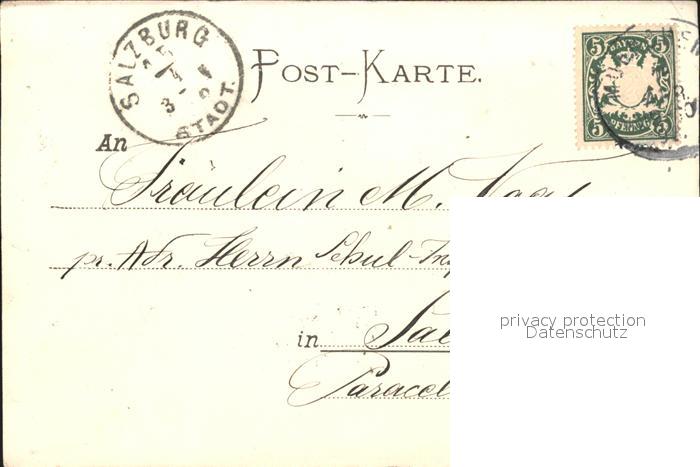 SALZBURG
STADT.
POST-KARTE.
5 BAYERN 5
5 PFENNIG 5
An
Fräulein M.
pr. Adr. Herrn Schul-Insp
in Sal
Paracel
privacy protection
Datenschutz